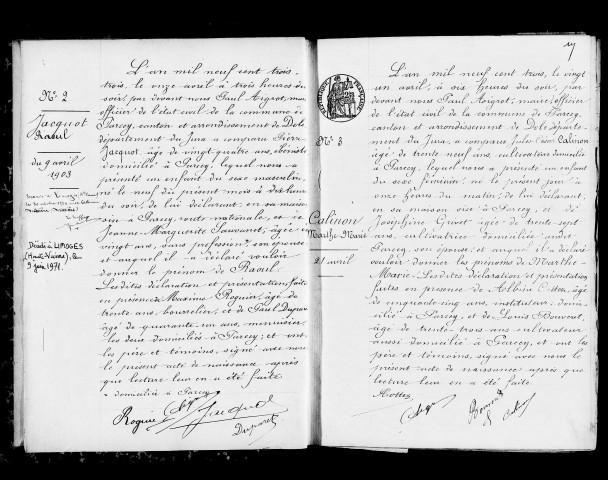 Nº 2
Jacquot
Raoul
du 9 avril
1903
Décédé à LIMOGES
(Haute-Vienne), le
9 juin 1971.
L'an mil neuf cent trois
trois, le onze avril à trois heures du
soir, par devant nous Paul, maire
officier de l'état civil de la commune de
Parcey, canton et arrondissement de Dole
département du Jura a comparu Pierre
Jacquot, âgé de vingt quatre ans, ébéniste
domicilié à Parcey, lequel nous a
présenté un enfant du sexe masculin,
né le neuf du présent mois à dix heures
du soir, de lui déclarant, en sa maison
sise à Parcey, route nationale, et de
Jeanne Marguerite, âgée de
vingt ans, sans profession, son épouse
et auquel il a déclaré vouloir
donner le prénom de Raoul
Lesdites déclaration et présentation faites
en présence Maxime Roguier, âgé de
trente ans, bourrelier, et de Paul Duparet
âgé de quarante un ans, menuisier
les deux domiciliés à Parcey; et ont
les père et témoins, signé avec nous
le présent acte de naissance après
que lecture leur en a été faite
domicilié à Parcey
Roguier Jacquot
Duparet
Nº 3
Calinon
Marthe-Marie
21 avril
L'an mil neuf cent trois, le vingt
un avril, à six heures du soir, par
devant nous Paul, maire, officier
de l'état civil de la commune de Parcey,
canton et arrondissement de Dole départe-
ment du Jura, a comparu Jules Calinon
âgé de trente neuf ans, cultivateur domicilié
à Parcey, lequel nous a présenté un enfant
du sexe féminin, né le présent jour à
onze heures du matin, de lui déclarant,
en sa maison sise à Parcey, et de
Joséphine, âgée de trente sept
ans, cultivatrice domiciliée audit
Parcey, son épouse; et auquel il a déclaré
vouloir donner les prénoms de Marthe-
Marie. Lesdites déclaration et présentation
faites en présence de Albin, âgé
de cinquante cinq ans, instituteur, domi-
cilié à Parcey, et de Louis Bouvout,
âgé de trente-trois ans, cultivateur
aussi domicilié à Parcey, et ont les
père et témoins, signé avec nous le
présent acte de naissance après que
lecture leur en a été faite